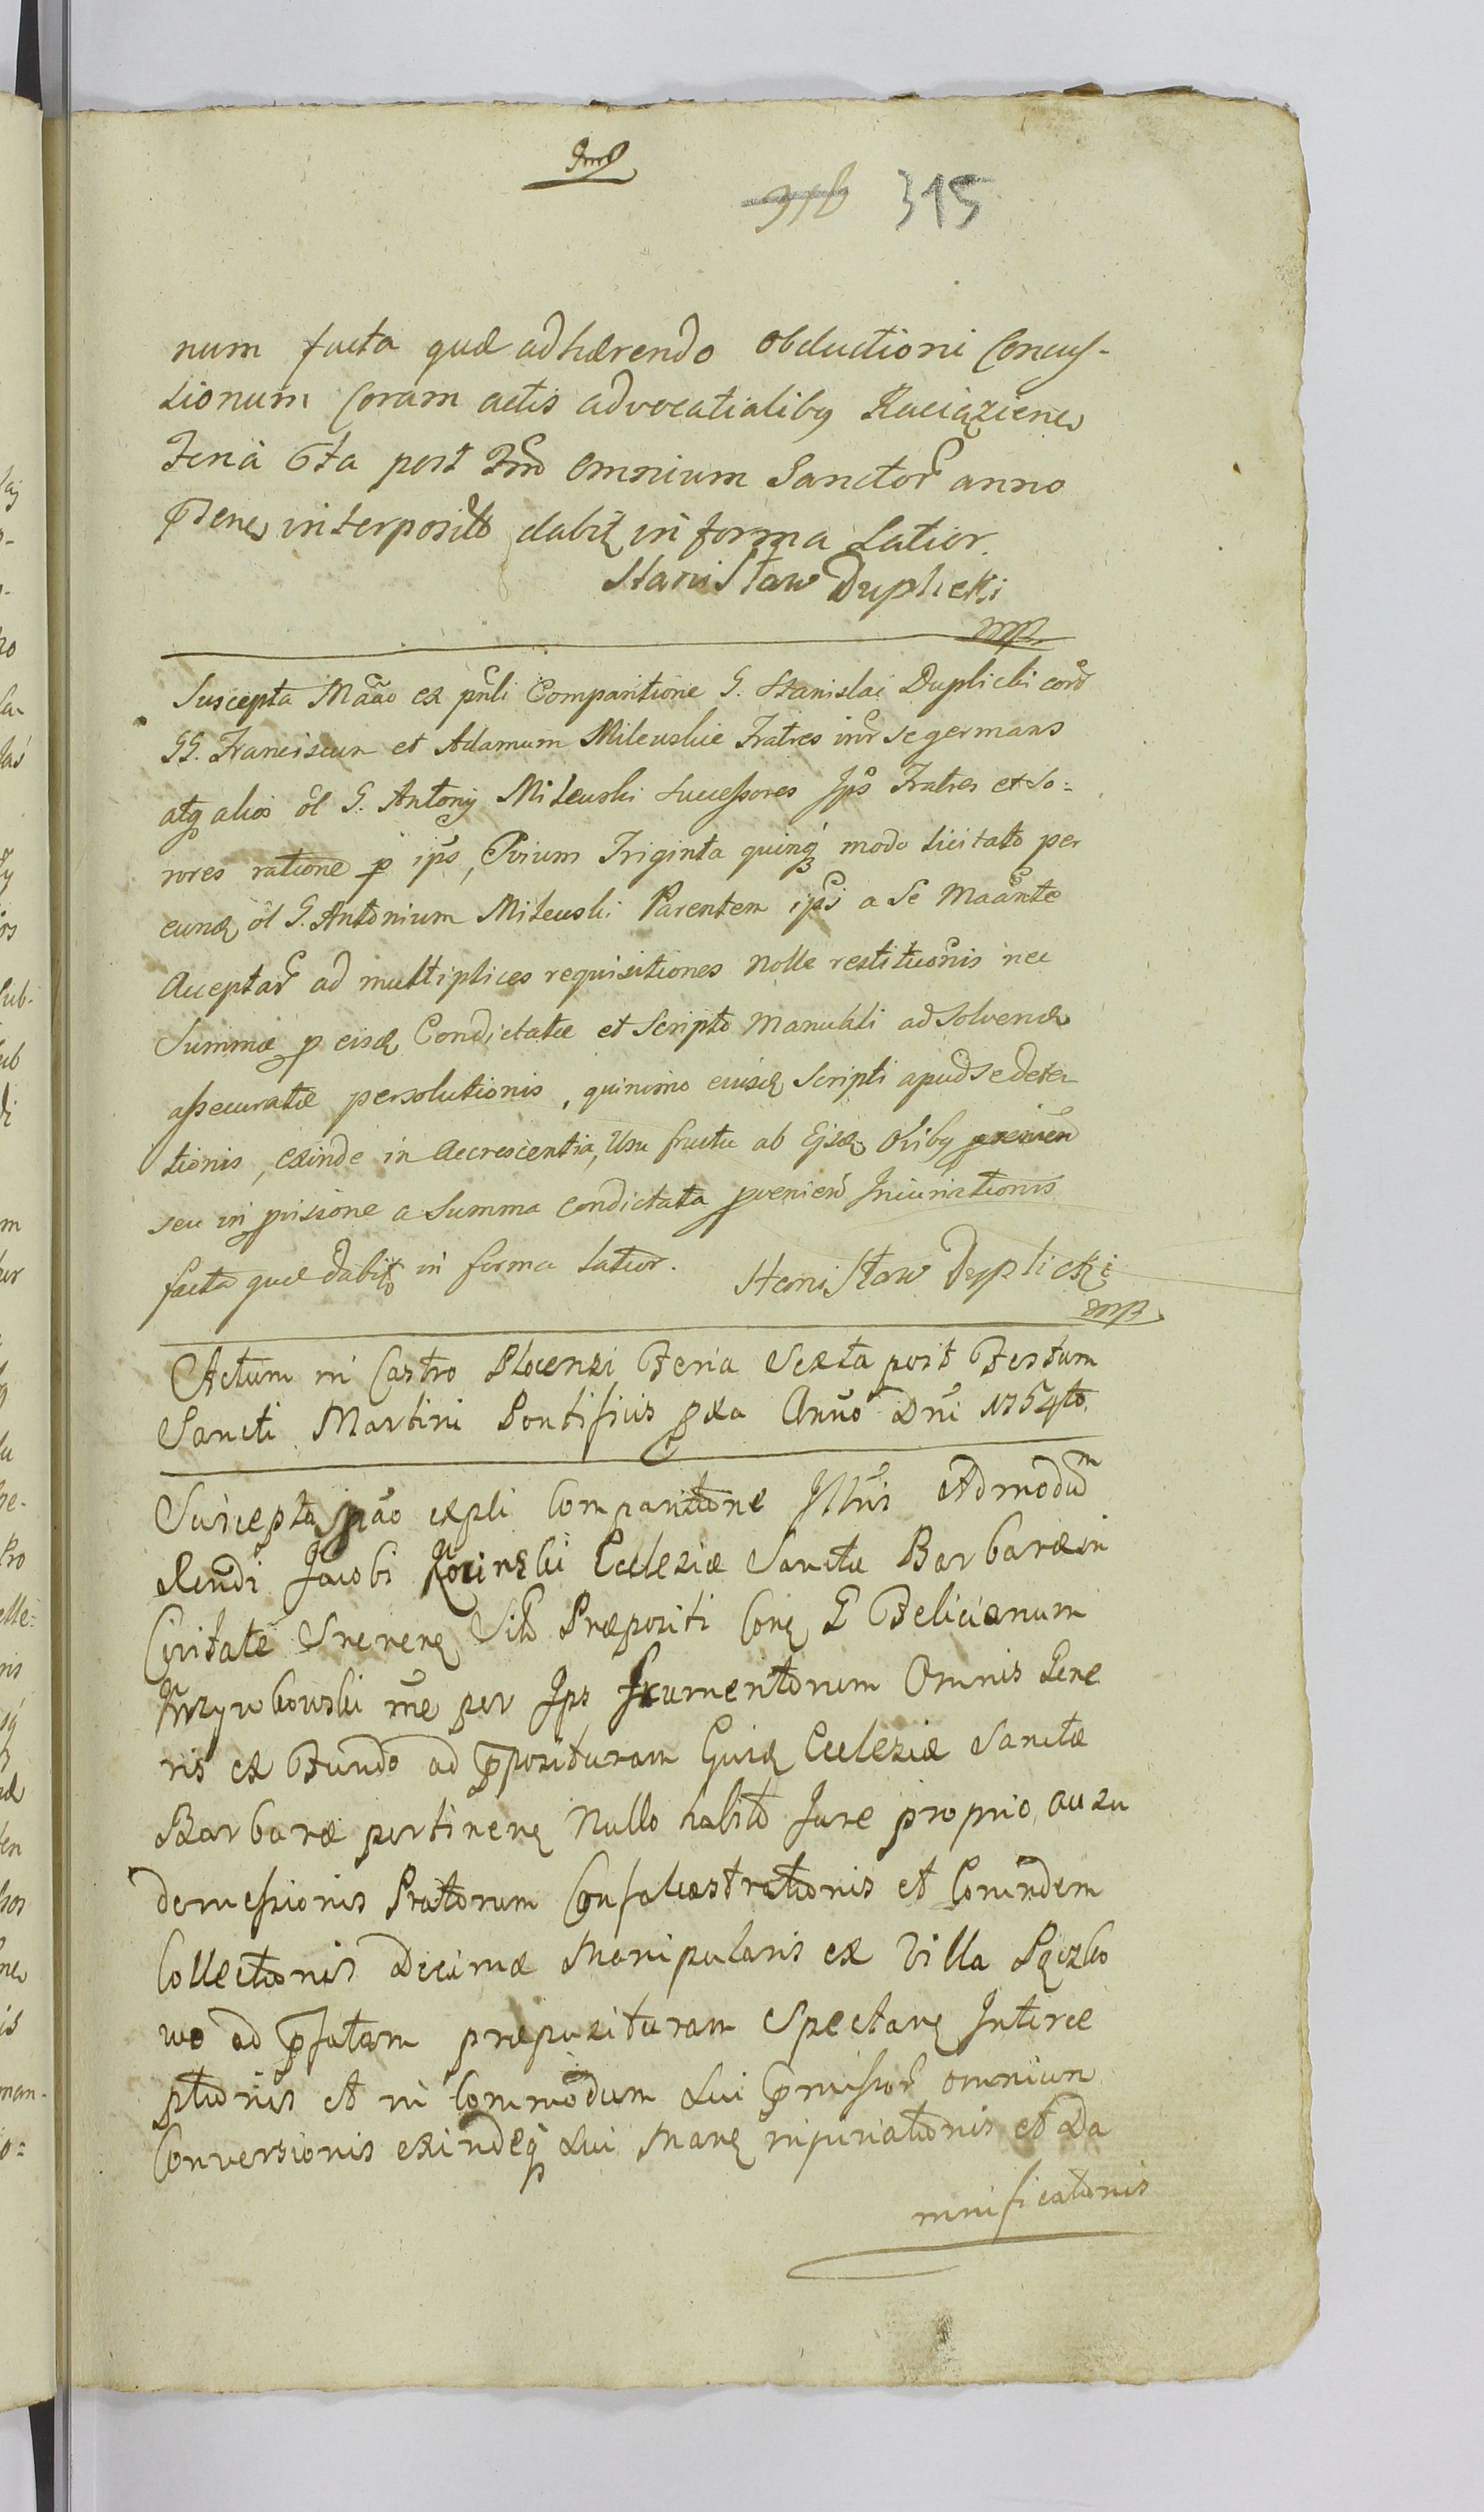 315
num facta quæ adhærendo obductioni Concus-
sionum Coram actis advocatialibq Raciążiene
Feria 6ta post Fm̃ Omnium Sanctor̃ anno
interposito dabit in forma Latior.
Stanisław Duplicki
mp
Suscepta Mãao ex pñli Comparitione G. Stanislai Duplicki corõ
GG. Franciscum et Adamum Milewskie Fratres inr̃ se germanos
atq alios õl G. Antonij Milewski Successores Jps̃ Fratres et So=
rores ratione p ips̃, Ovium Triginta quinq modo licitato per
eund õl G. Antonium Milewski Parentem ips̃i a Se Maãnte
Acceptar̃ ad multiplices requisitiones nolle restituõnis nec
Summæ p eisd Condictatæ et Scripto Manuali ad solvend
assecuratæ persolutionis, quinimo eiusd Scripti apud se deten
tionis, exinde in accrescentia, Usu fructu ab Ejsd Ovibq
seu in pvisione a Summa condictata pvenien Iniuriationis
facta quæ dabit in forma latior. Stanisław Duplicki
mp
Actum in Castro Plocensi Feria Sexta post Festum
Sancti Martini Pontificis pxa Anno Dni 1754to.
Suscepta pão expli Comparitione Jllris Admodum
Rendi Jacobi Kosinski Ecclesiæ Sanctæ Barbaræ in
Civitate Srenens Sito Præpositi Cong G Felicianum
Grzywkowski rñe per Jps Frumentorum Omnis Gene
ris ex Fundo ad ppozituram Ejusd Ecclesiæ Sanctæ
Barbaræ pertinens Nullo habito Jure proprio ausu
demessionis Pratorum Confalcastrationis et Eorundem
Collectionis Decimæ Manipularis ex Villa Pęczko
wo ad pfatam præposituram Spectans Interce
ptionis et in Commodum Sui pmissor̃ omnium
Conversionis exindeq Sui Mane injuriationis et Da
mnificationis